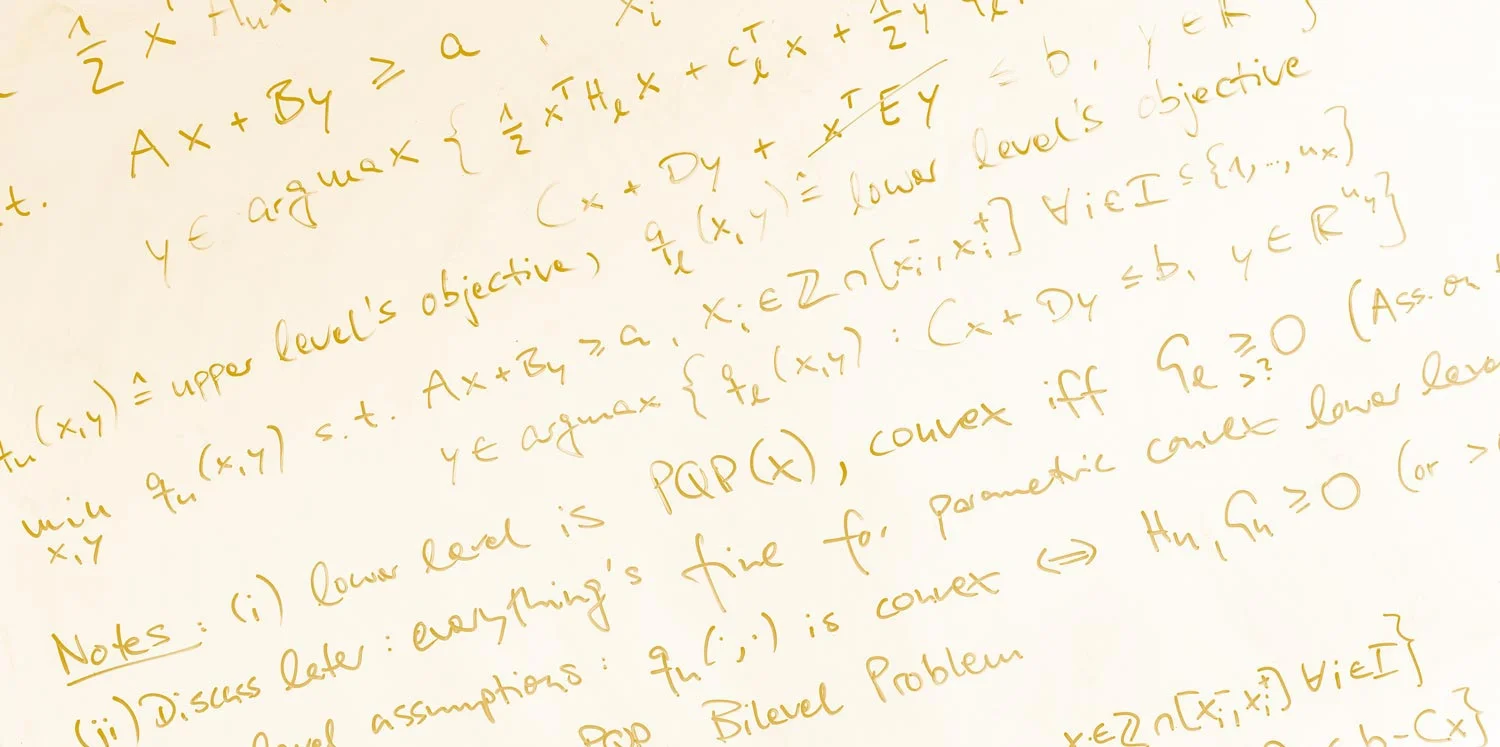 1/2 x^T H_u x
Ax + By ≥ a , x_i
t.
y ∈ argmax { 1/2 x^T H_l x + c_l^T x + 1/2 y
Cx + Dy + x^T E y ≤ b, y ∈ ℝ }
q_u(x,y) ≙ upper level's objective, q_l(x,y) ≙ lower level's objective
min q_u(x,y) s.t. Ax + By ≥ a, x_i ∈ ℤ ∩ [x_i^-, x_i^+] ∀ i ∈ I ⊆ {1,...,n_x}
x,y
y ∈ argmax { q_l(x,y) : Cx + Dy ≤ b, y ∈ ℝ^{n_y} }
Notes: (i) lower level is PQP(x), convex iff G_l ≥ 0 (Ass. on
>?
(ii) Discuss later: everything's fine for parametric convex lower level
level assumptions: q_u(·,·) is convex ⟺ H_u, G_u ≥ 0 (or >
PQP Bilevel Problem
x_i ∈ ℤ ∩ [x_i^-, x_i^+] ∀ i ∈ I }
≤ b - Cx }